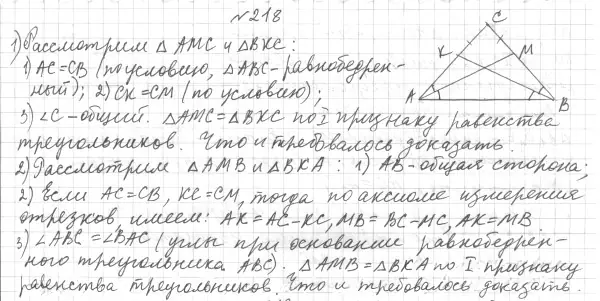 №218
1) Рассмотрим △ AMC и △BKC:
1) AC=CB (по условию, △ABC-равнобедрен-
ный); 2) CK=CM (по условию);
3) ∠C-общий. △AMC=△BKC по I признаку равенства
треугольников. Что и требовалось доказать.
2) Рассмотрим △AMB и △BKA: 1) AB-общая сторона;
2) Если AC=CB, KC=CM, тогда по аксиоме измерения
отрезков, имеем: AK=AC-KC, MB=BC-MC, AK=MB
3) ∠ABC=∠BAC (углы при основании равнобедрен-
ного треугольника ABC). △AMB=△BKA по I признаку
равенства треугольников. Что и требовалось доказать.
C
K
M
A
B